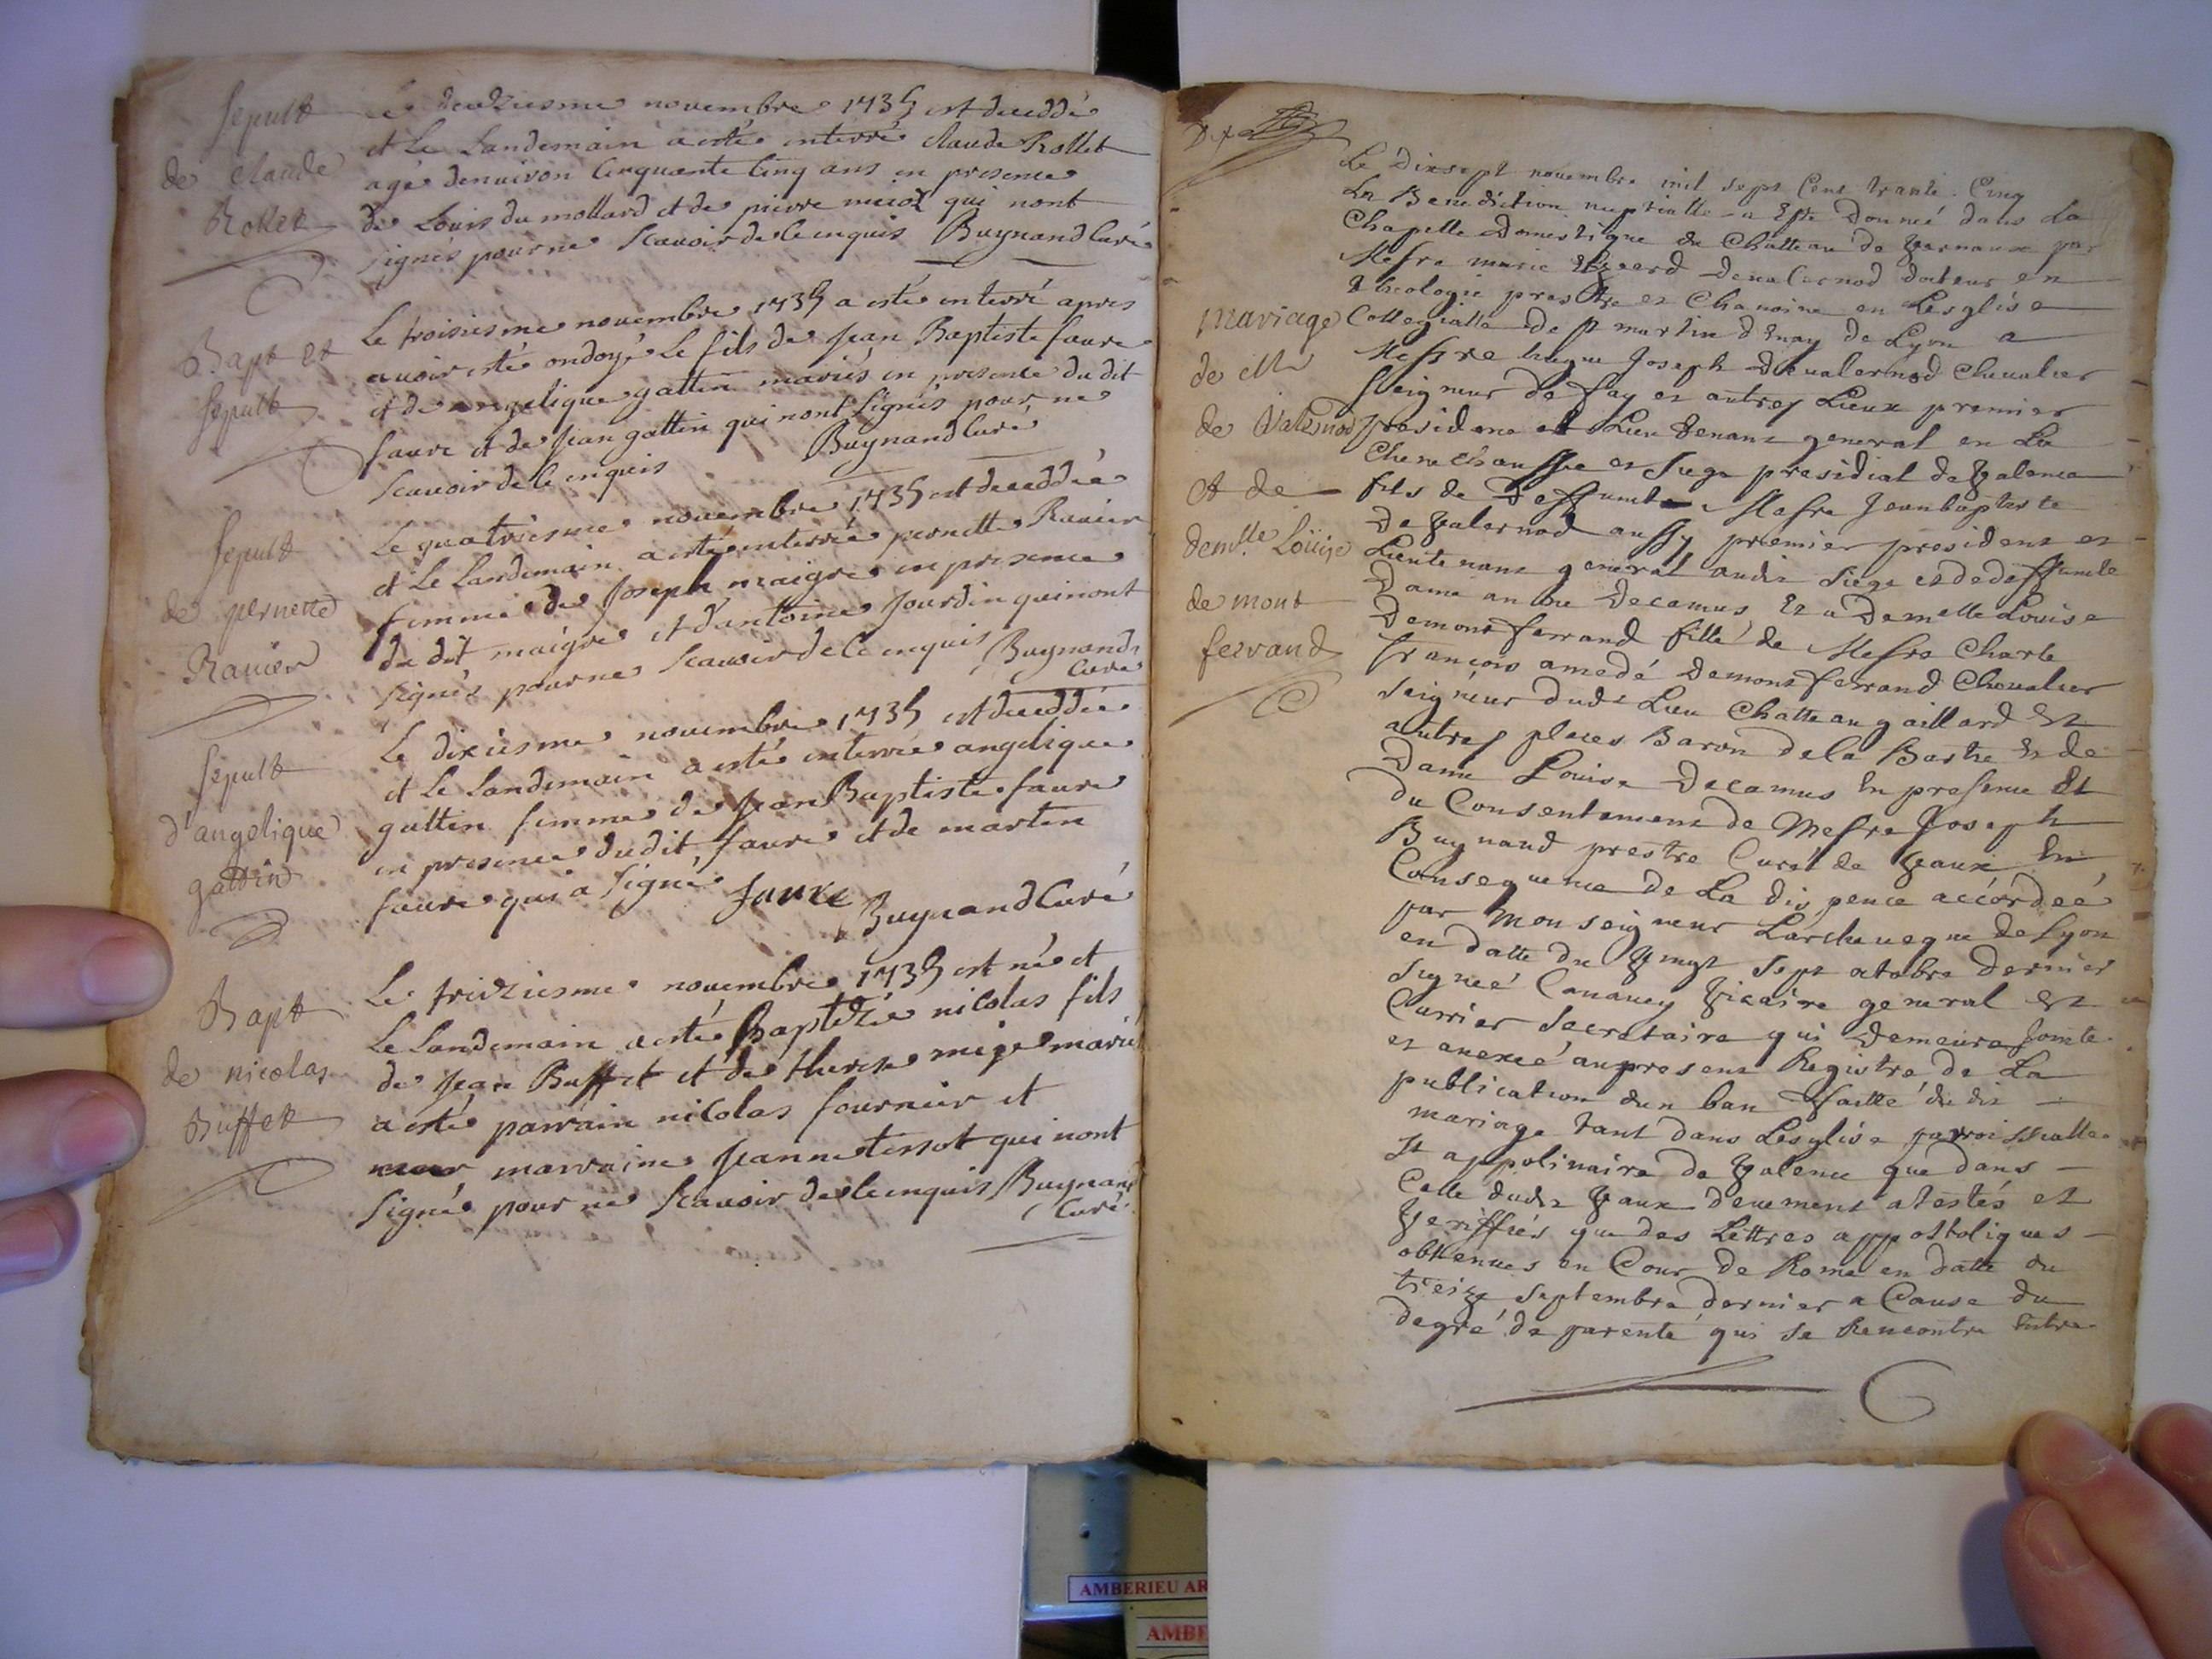 Sepult
de Claude
Rollet
Le deuziesme novembre 1735 est deceddé
et Le Landemain a esté enterré claude Rollet
agé denviron Cinquante Cinq ans en presence
de Louis du mollard et de pierre qui nont
signés pour ne scavoir de ce enquis Buynand Curé
Bapt et
Sepult
Le troisiesme novembre 1735 a esté enterré apres
avoir esté ondoyé Le fils de Jean Baptiste faure
et de angelique gattin mariés en presence du dit
faure et de Jean gattin qui nont signés pour ne
scavoir de ce enquis Buynand Curé
Sepult
de pernette
Ravier
Le quatriesme novembre 1735 est deceddée
et Le Landemain a esté enterrée pernette Ravier
femme de Joseph maigre en presence
du dit maigre et d'antoine Jourdin qui nont
signés pour ne scavoir de ce enquis Buynand
Curé
Sepult
d'angelique
gattin
Le dixiesme novembre 1735 est deceddée
et Le Landemain a esté enterrée angelique
gattin femme de Jean Baptiste faure
en presence du dit faure et de martin
faure qui a signé faure
Buynand Curé
Bapt
de nicolas
Buffet
Le treiziesme novembre 1735 est né et
Le Landemain a esté Baptizé nicolas fils
de Jean Buffet et de therese mariés
a esté parrain nicolas fournier et
marraine Jeanne tissot qui nont
signés pour ne scavoir de ce enquis Buynand
Curé
Dix
Le dixsept novembre mil sept Cent trante Cinq
La Benediction nuptialle a Esté Donneé dans La
Chapelle Domestique du Chatteau de Vernaux par
Messre marie devalernod docteur en
theologie prestre et Chanoine en Lesglise
Collegialle de st martin d'Enay de Lyon a
Messre hugue Joseph Devalernod Chevalier
Seigneur de fay et autres Lieux premier
president et Lieutenant general en La
Senechaussée et Siege presidial de Valence
fils de deffunct Messre Jean baptiste
de Valernod aussy premier president et
Lieutenant general audit siege et de deffuncte
Dame anne Decamus Et a Demelle Louise
Demontferrand fille de Messre Charle
françois amedé Demontferrand Chevalier
Seigneur dudt Lieu Chatteaugaillard Et
autres places Baron de la Bastie Et de
Dame Louise Decamus En presence Et
du Consentement de Messre Joseph
Buynand prestre Curé de Vaux En
Consequence de La dispence accórdeé
par Monseigneur Larchevegue de Lyon
en datte du Vingt sept octobre dernier
Signeé Vicaire general Et
Currier Secretaire qui demeure Jointe
et anexeé au present Registre de La
publication dun ban faitte du dit
mariage tant dans Lesglise parroissialle
St appolinaire de Valence que dans
Celle dudt Vaux deuement atestés et
Veriffiés que des Lettres appostoliques
obtenues en Cour de Rome en datte du
treize septembre dernier a Cause du
degré de parenté qui se Rencontre Entre
Mariage
de Mr
de Valernod
Et de
demlle Loüise
de mont
ferrand
AMBERIEU AR
AMBE